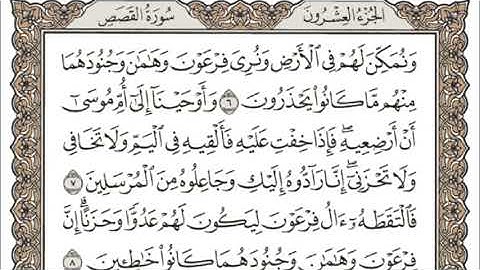 الجزء العشرون سورة القصص
وَنُمَكِّنَ لَهُمْ فِى ٱلْأَرْضِ وَنُرِىَ فِرْعَوْنَ وَهَٰمَٰنَ وَجُنُودَهُمَا
مِنْهُم مَّا كَانُوا۟ يَحْذَرُونَ ٦ وَأَوْحَيْنَآ إِلَىٰٓ أُمِّ مُوسَىٰٓ
أَنْ أَرْضِعِيهِ ۖ فَإِذَا خِفْتِ عَلَيْهِ فَأَلْقِيهِ فِى ٱلْيَمِّ وَلَا تَخَافِى
وَلَا تَحْزَنِىٓ ۖ إِنَّا رَآدُّوهُ إِلَيْكِ وَجَاعِلُوهُ مِنَ ٱلْمُرْسَلِينَ ٧
فَٱلْتَقَطَهُۥٓ ءَالُ فِرْعَوْنَ لِيَكُونَ لَهُمْ عَدُوًّا وَحَزَنًا ۗ إِنَّ
فِرْعَوْنَ وَهَٰمَٰنَ وَجُنُودَهُمَا كَانُوا۟ خَٰطِـِٔينَ ٨